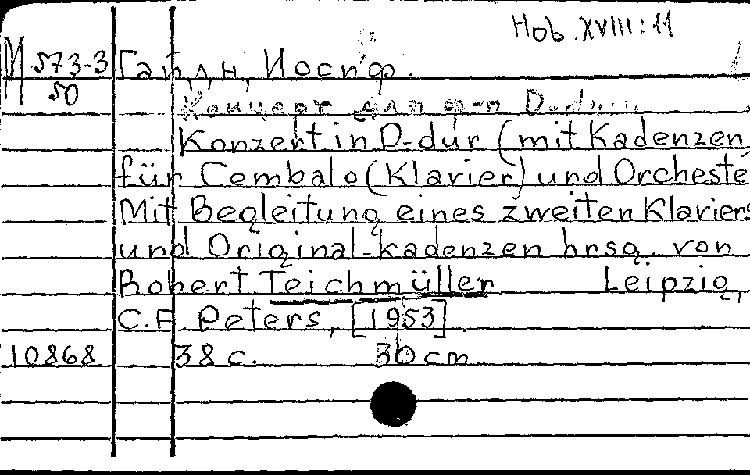 Hob. XVIII:11
М 573-3 Гайдн, Иосиф.
50
Концерт для ф-п D-dur.
Konzert in D-dur (mit Kadenzen
für Cembalo (Klavier) und Orcheste
Mit Begleitung eines zweiten Klaviers
und Original-kadenzen hrsg. von
Robert Teichmüller Leipzig,
C.F. Peters, [1953]
10868 38 с. 30 cm